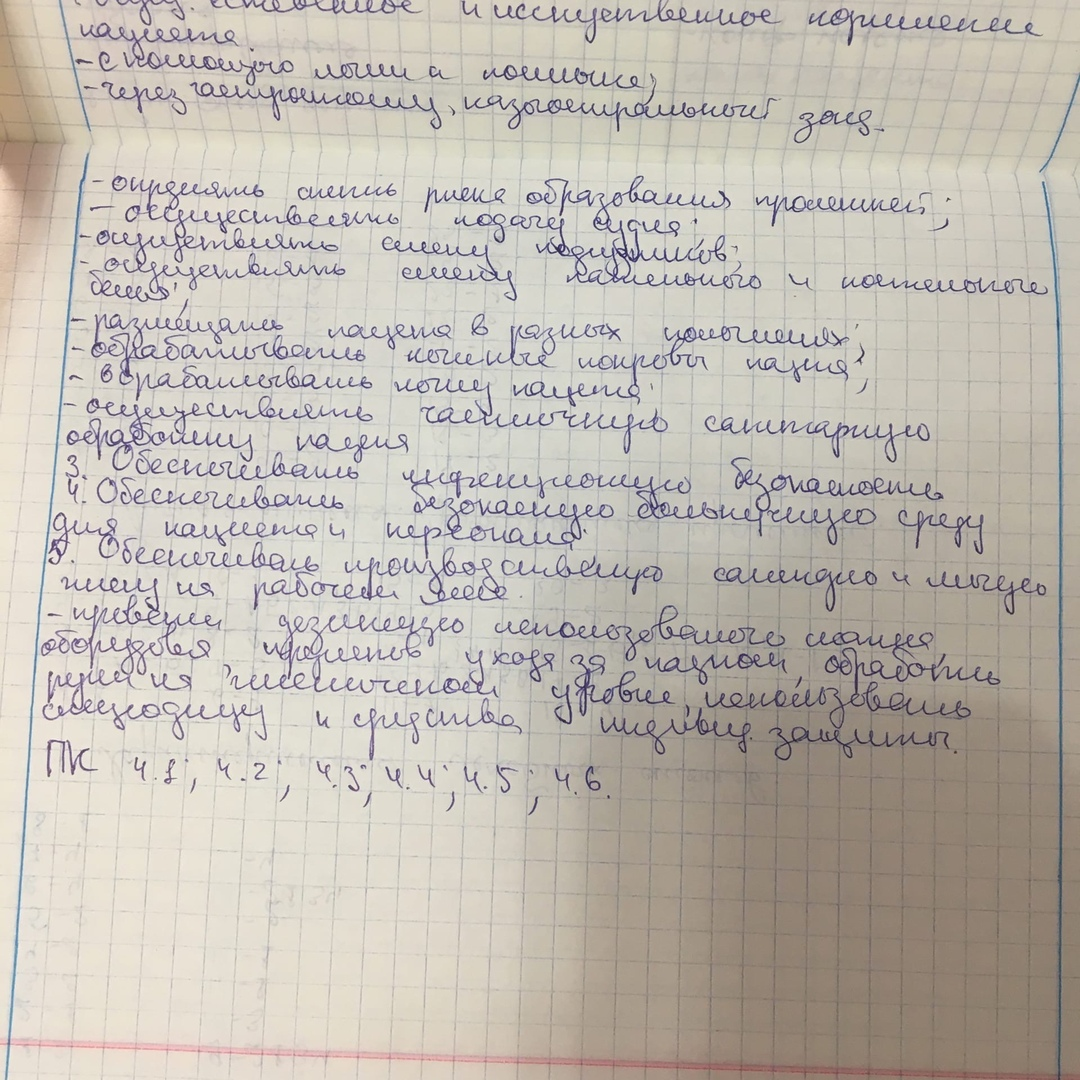 ественное и исскуственное кормление
пациента.
- с помощью ложки и поильника;
- через гастростому, назогастральный зонд.
- опрделять степнь риска образования пролежней;
- осуществлять подачу судна;
- осуществлять смену подгузников;
- осуществлять смену нательного и постельного
белья;
- размещать пацента в разных положениях;
- обрабатывать кожные покровы пацня;
- обрабатывать кожу пацента;
- осуществлять частичную санитарную
обработку пацня
3. Обеспечивать инфекционную безопасность
4. Обеспечивать безопасную больничную среду
для пациента и персонала.
5. Обеспечивать производственную санитарию и личную
гигиену на рабочем месте.
- проводить дезинфекцию использованого
оборудовая предметов ухода за пацном, обработать
руки на гигиеническом уровне, использовать
спецодежду и средства индивид. защиты.
ПК 4.1; 4.2; 4.3; 4.4; 4.5; 4.6.